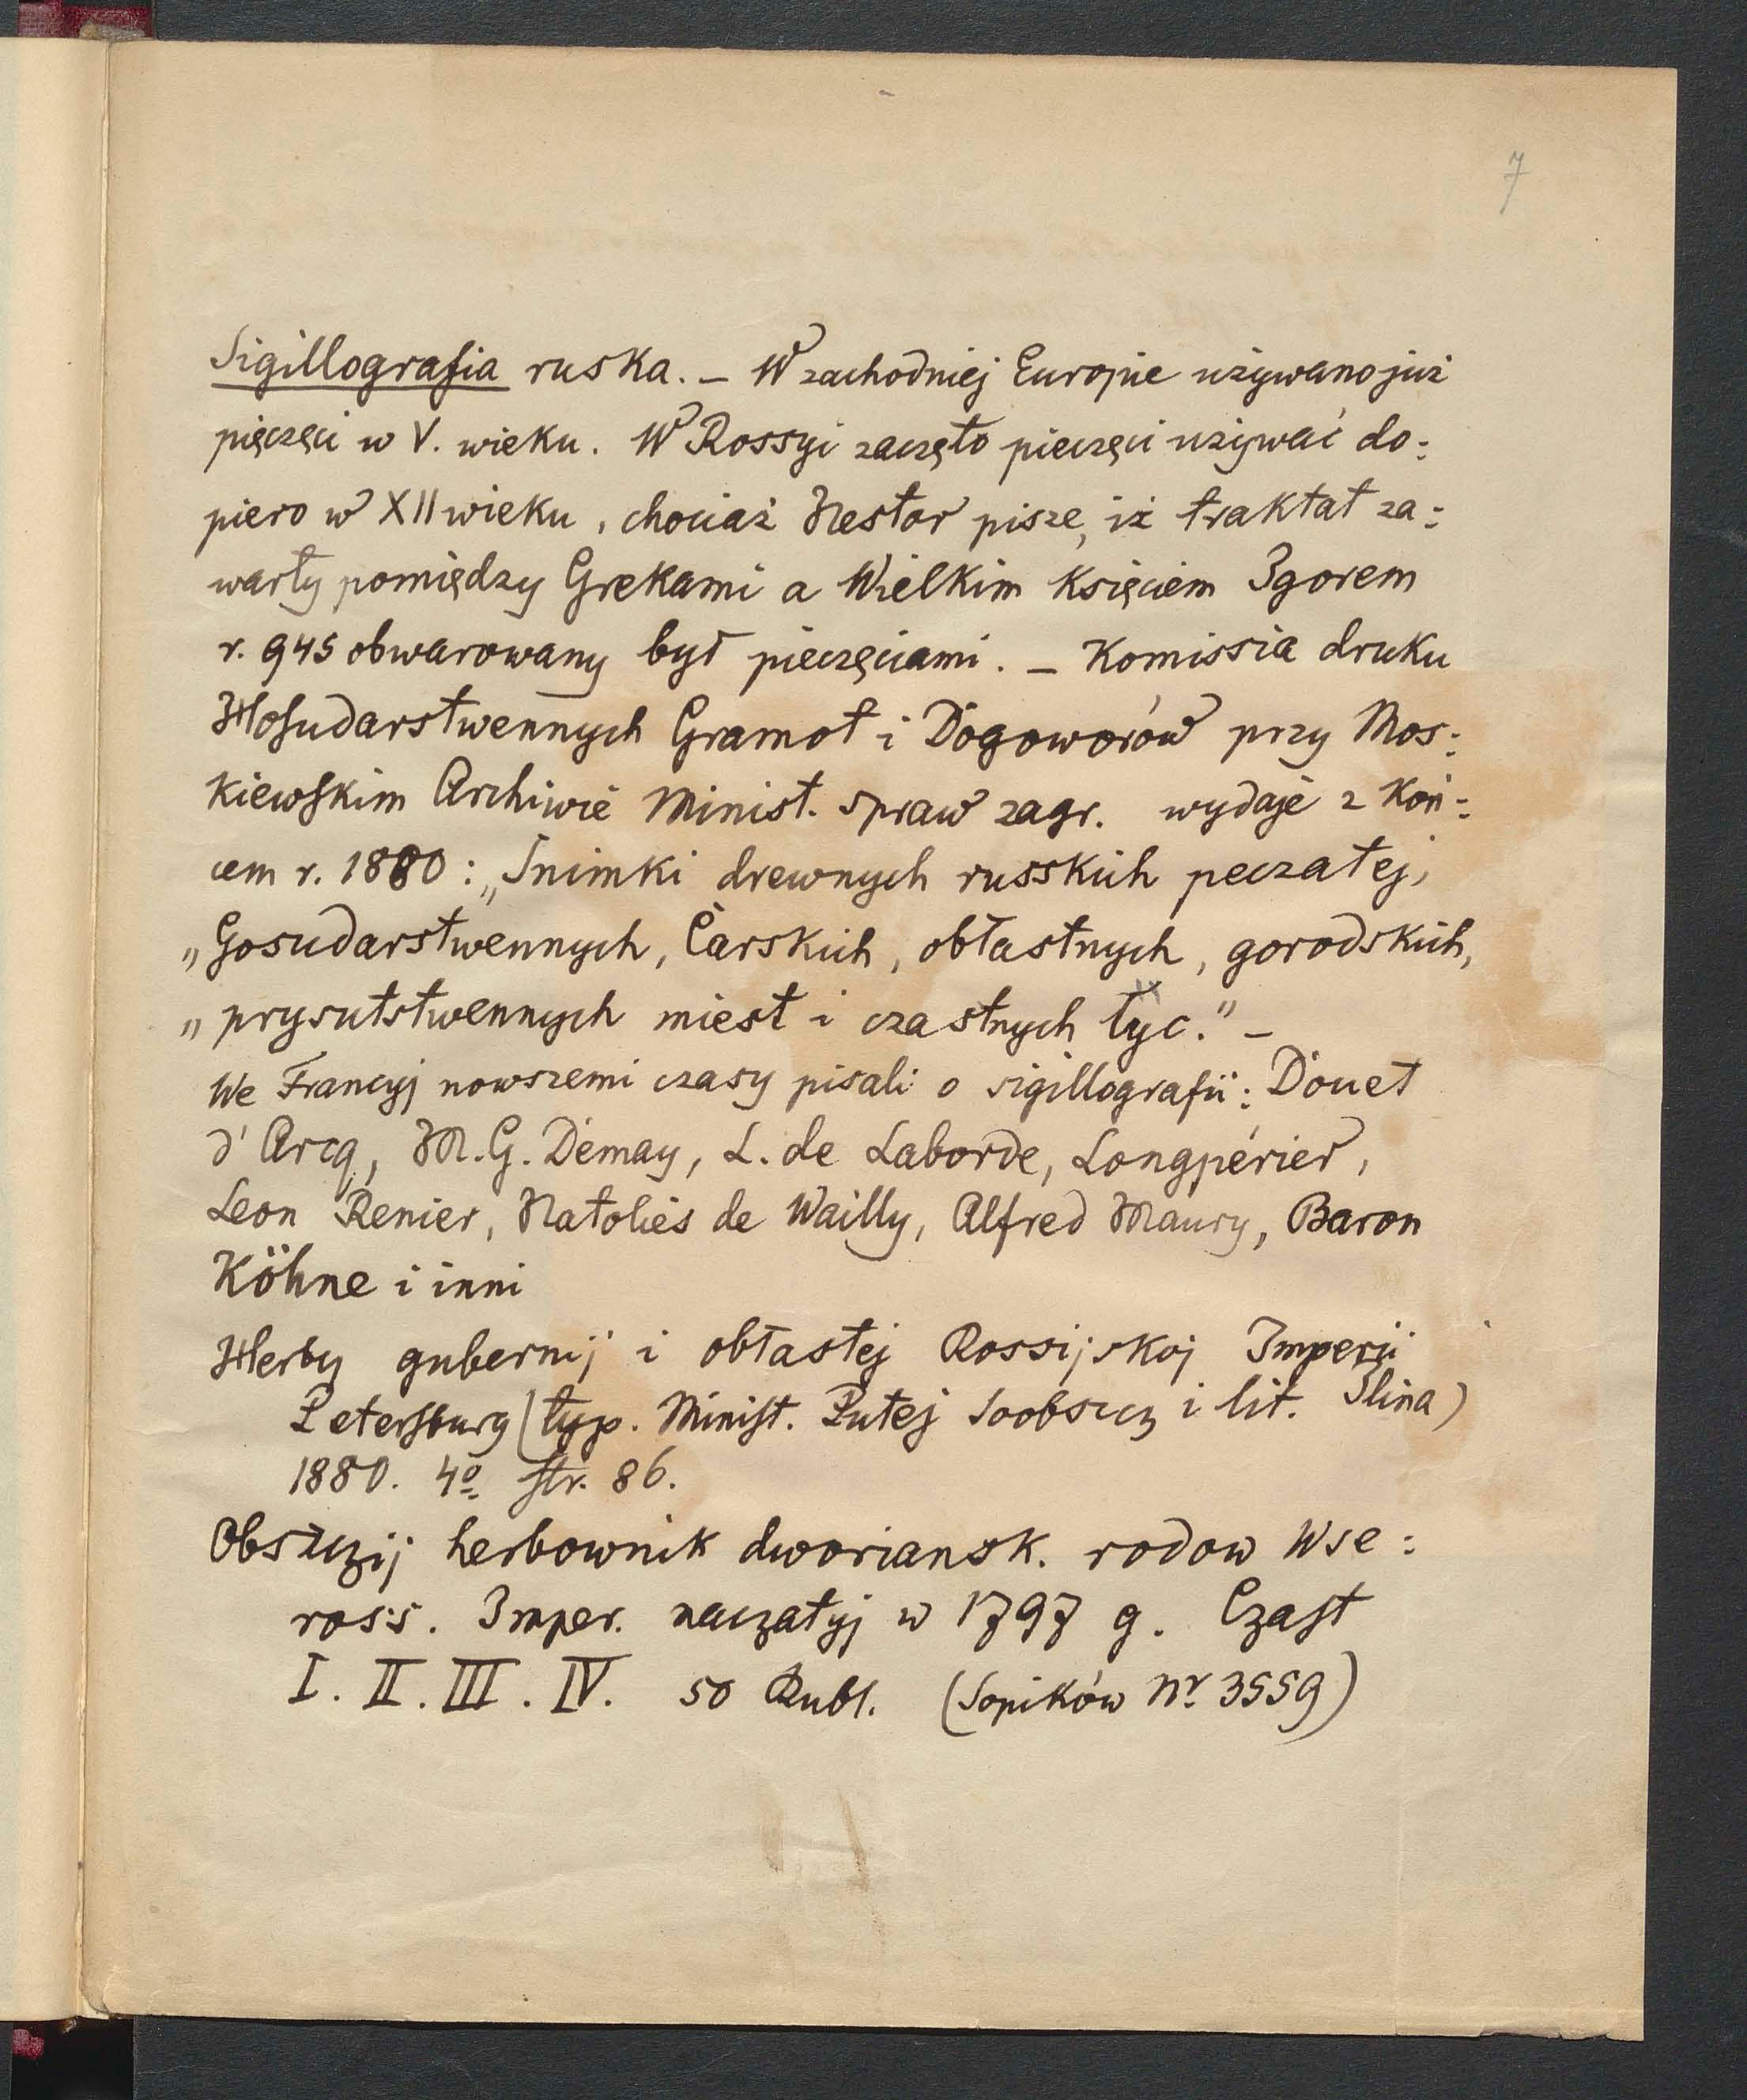 7
Sigillografia ruska. – W zachodniej Europie używano już
pięczęci w V. wieku. W Rossyi zaczęto pieczęci używać do:
piero w XII wieku, chociaż Nestor pisze, iż traktat za:
warty pomiędzy Grekami a Wielkim Księciem Igorem
r. 945 obwarowany był pieczęciami. – Komissia druku
Hosudarstwennych Gramot i Dogoworów przy Mos:
kiewskim Archiwie Minist. spraw zagr. wydaje z koń:
cem r. 1880: „Snimki drewnych russkich peczatej,
„Gosudarstwennych, Carskich, obłastnych, gorodskich,
„prysutstwennych miest i czastnych łyc." –
We Francyj nowszemi czasy pisali o sigillografii: Douet
d'Arcq, M. G. Demay, L. de Laborde, Longpérier,
Leon Renier, Natolies de Wailly, Alfred Maury, Baron
Köhne i inni
Herby gubernij i obłastej Rossijskoj Imperii
Petersburg (typ. Minist. Putej Soobszcz i lit. Ilina)
1880. 4º str. 86.
Obszczij herbownik dworiansk. rodow Wse:
ross. Imper. naczatyj w 1797 g. Czast
I. II. III. IV. 50 Rubl. (Sopików Nr 3559)